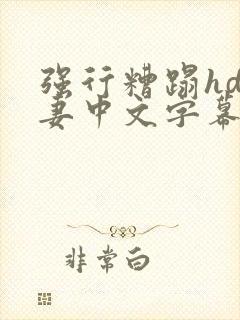 强行糟蹋hd
妻中文字幕
非常白